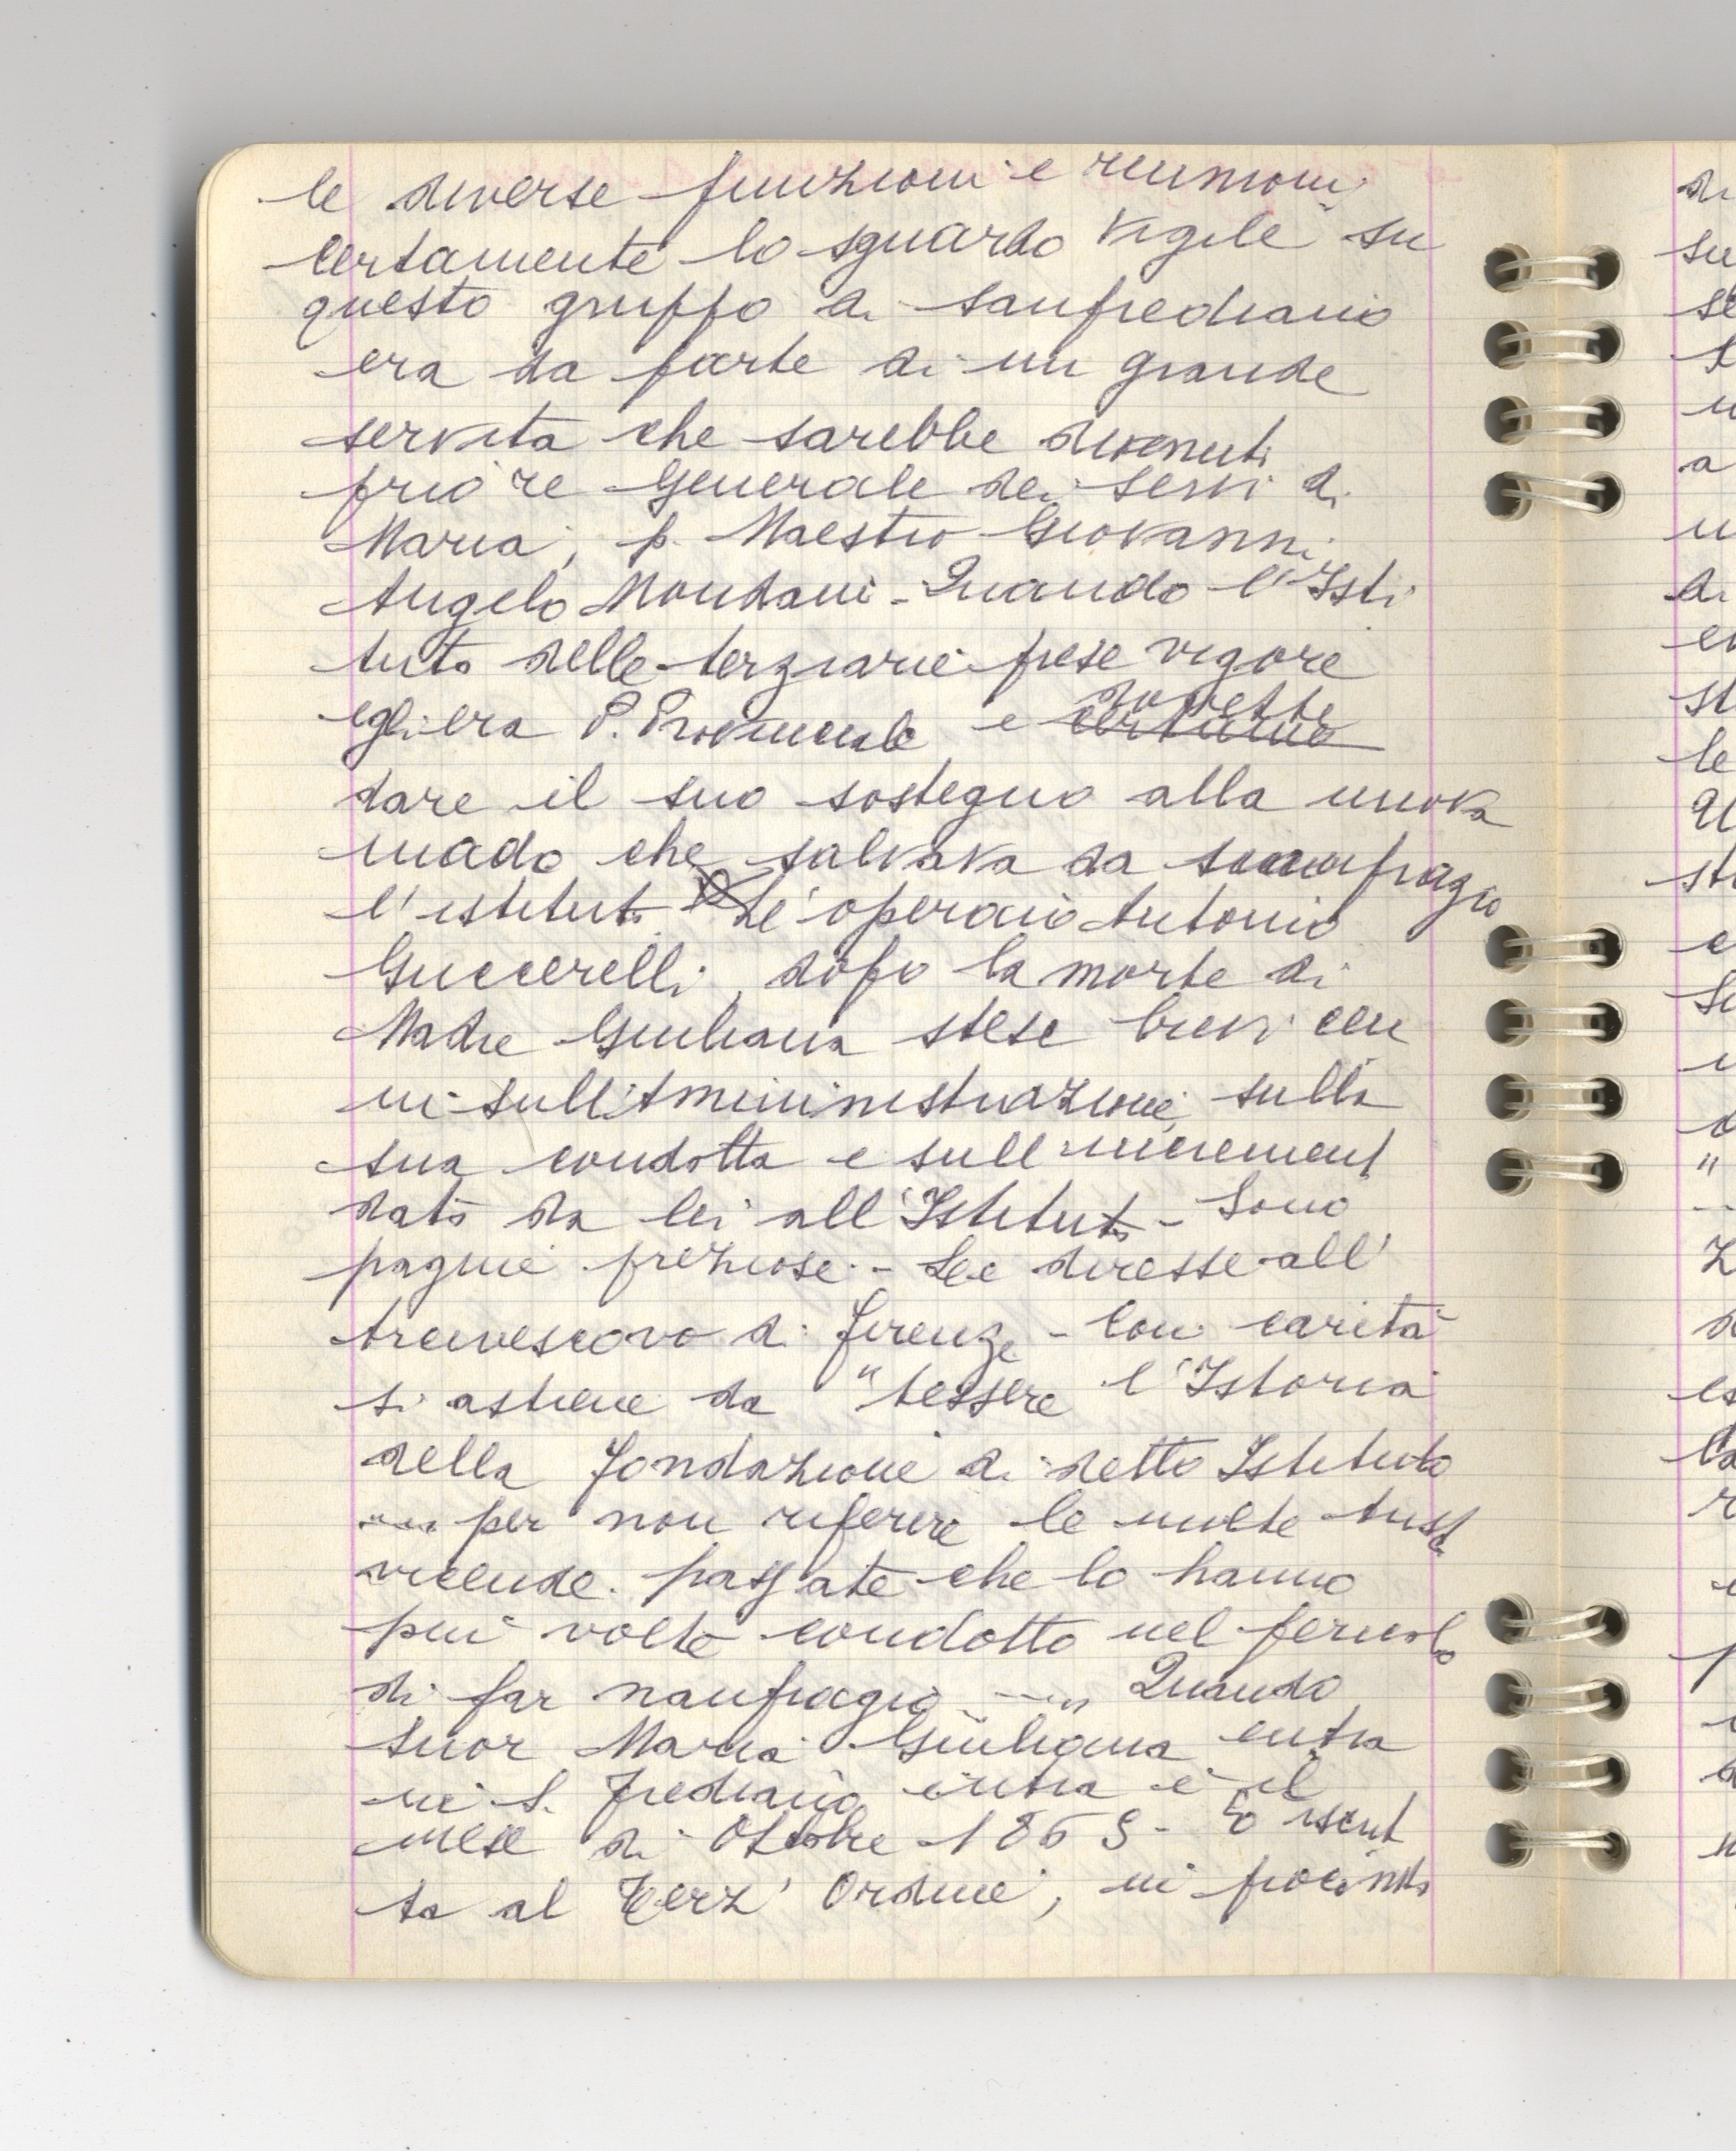 le diverse funzioni e riunioni
Certamente lo sguardo vigile su
questo gruppo di Sanfrediano
era da parte di un grande
servita che sarebbe divenuto
priore Generale dei Servi di
Maria, p. Maestro Giovanni
Angelo Mondani - Quando l'Isti
tuto delle terziarie prese vigore
egli era P. Provinciale e dovette
dare il suo sostegno alla nuova
madre che salvava da naufragio
l'istituto L'operaio Antonio
Guccerelli, dopo la morte di
Madre Giuliana stese brevi cen
ni sull'Amministrazione, sulla
sua condotta e sull'increment
dato da lei all'Istituto - Sono
pagine preziose - Le diresse all'
Arcivescovo di Firenze - Con carità
si astiene da "tessere l'Istoria
della Fondazione di detto Istituto
.... per non riferire le molte triste
vicende passate che lo hanno
più volte condotto nel pericolo
di far naufragio ...." Quando
Suor Maria Giuliana entra
in S. Frediano è il
mese di Ottobre 1869 - È iscrit
ta al Terz' Ordine, in procinto
di
su
se
a
di
st
le
st
e
"